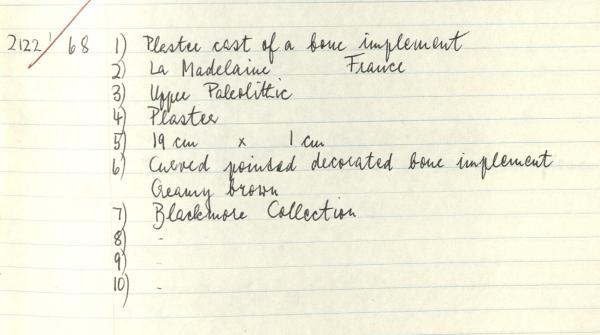 2122' / 68 1) Plaster cast of a bone implement
2) La Madelaine France
3) Upper Paleolithic
4) Plaster
5) 19 cm x 1 cm
6) Curved pointed decorated bone implement
Creamy brown
7) Blackmore Collection
8) -
9) -
10) -